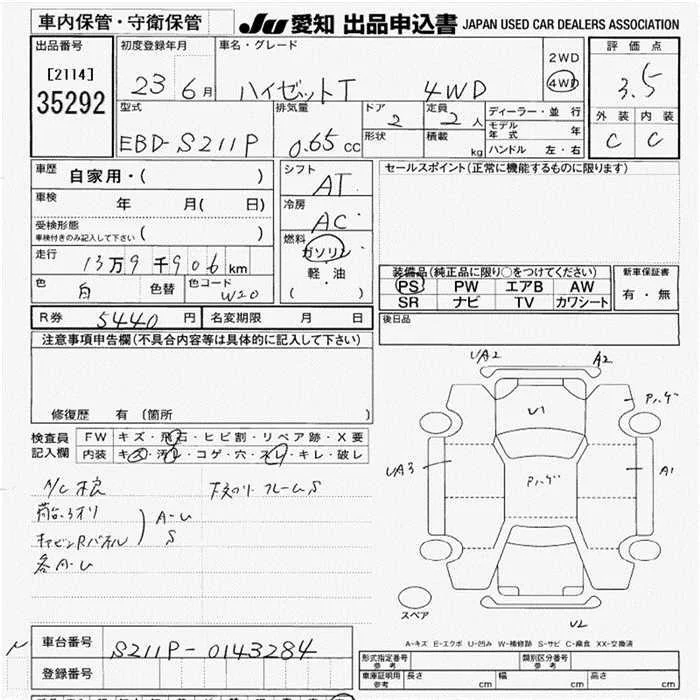 車内保管・守衛保管 JU 愛知 出品申込書 JAPAN USED CAR DEALERS ASSOCIATION
出品番号 初度登録年月 車名・グレード 評価点
[2114] 35292 23 6月 ハイゼットT 4WD 2WD 4WD 3.5
型式 排気量 ドア 定員 ディーラー・並行 外装 内装
EBD-S211P 0.65cc 2 2人 モデル年式 年 C C
形状 積載 kg ハンドル 左・右
車歴 自家用・( ) シフト AT セールスポイント(正常に機能するものに限ります)
車検 年 月( 日) 冷房 AC
受検形態 車検付きのみ記入して下さい ( ) 燃料 ガソリン・軽・油 ( )
走行 13万9千906km
装備品(純正品に限り○をつけてください) 新車保証書
色 白 色替 色コード W20
PS PW エアB AW 有・無
SR ナビ TV カワシート
R券 5440円 名変期限 月 日 後日品
注意事項申告欄(不具合内容等は具体的に記入して下さい)
修復歴 有(箇所 )
UA2 A2
検査員記入欄 FW キズ・飛石・ヒビ割・リペア跡・X要
内装 キズ・汚レ・コゲ・穴・スレ・キレ・破レ
U1
UA3 A1
A-U
S
各A-U
スペア U2
A-キズ E-エクボ U-凹み W-補修跡 S-サビ C-腐食 XX-交換済
車台番号 S211P-0143284
登録番号
形式指定番号 参考 類別区分番号 参考
車庫証明用 参考 長さ cm 幅 cm 高さ cm